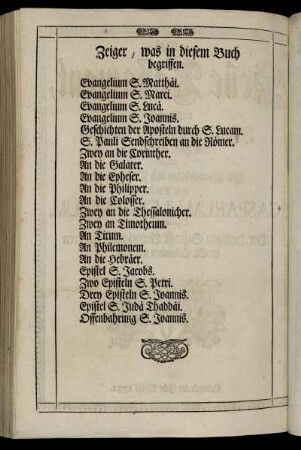 Zeiger, was in diesem Buch
begriffen.
Evangelium S. Matthäi.
Evangelium S. Marci.
Evangelium S. Lucä.
Evangelium S. Joannis.
Geschichten der Aposteln durch S. Lucam.
S. Pauli Sendschreiben an die Römer.
Zwey an die Corinther.
An die Galater.
An die Epheser.
An die Philipper.
An die Colosser.
Zwey an die Thessalonicher.
Zwey an Timotheum.
An Titum.
An Philemonem.
An die Hebräer.
Epistel S. Jacobs.
Zwo Episteln S. Petri.
Drey Episteln S. Joannis.
Epistel S. Judä Thaddäi.
Offenbahrung S. Joannis.